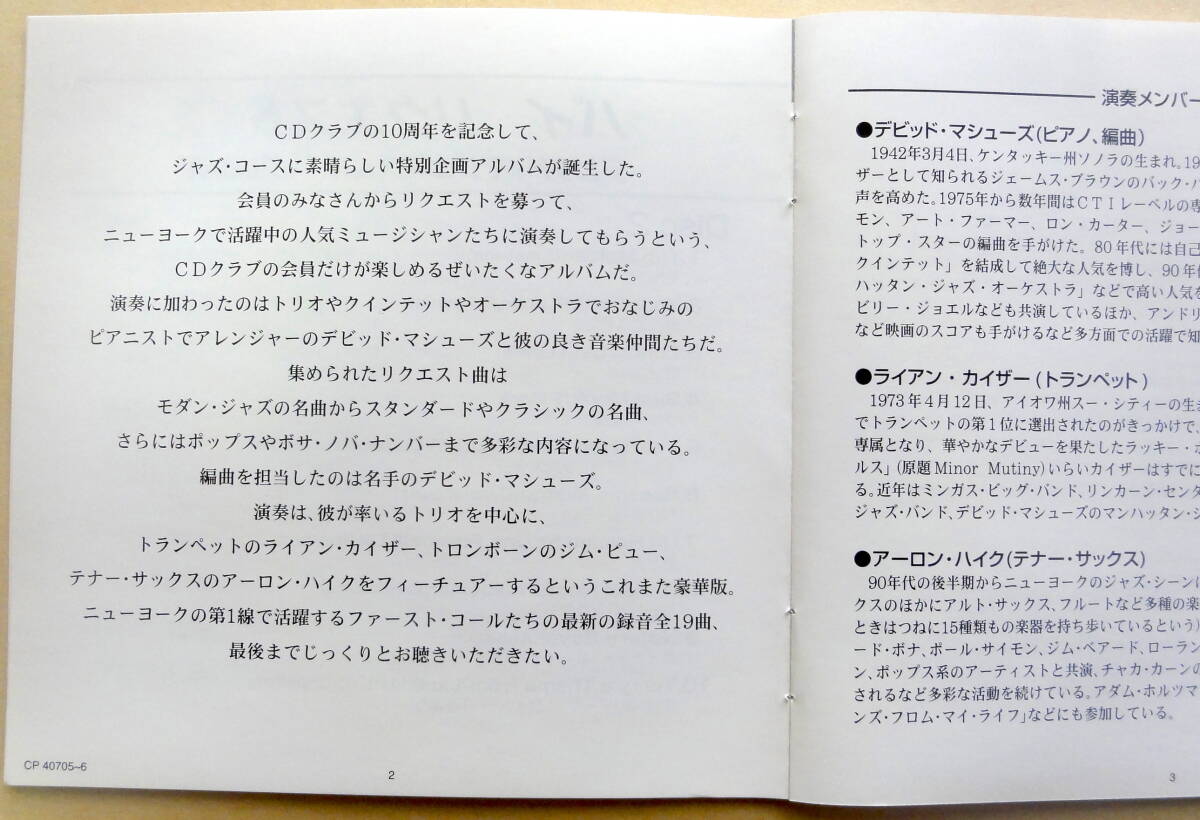 CDクラブの10周年を記念して、
ジャズ・コースに素晴らしい特別企画アルバムが誕生した。
会員のみなさんからリクエストを募って、
ニューヨークで活躍中の人気ミュージシャンたちに演奏してもらうという、
CDクラブの会員だけが楽しめるぜいたくなアルバムだ。
演奏に加わったのはトリオやクインテットやオーケストラでおなじみの
ピアニストでアレンジャーのデビッド・マシューズと彼の良き音楽仲間たちだ。
集められたリクエスト曲は
モダン・ジャズの名曲からスタンダードやクラシックの名曲、
さらにはポップスやボサ・ノバ・ナンバーまで多彩な内容になっている。
編曲を担当したのは名手のデビッド・マシューズ。
演奏は、彼が率いるトリオを中心に、
トランペットのライアン・カイザー、トロンボーンのジム・ピュー、
テナー・サックスのアーロン・ハイクをフィーチュアーするというこれまた豪華版。
ニューヨークの第1線で活躍するファースト・コールたちの最新の録音全19曲、
最後までじっくりとお聴きいただきたい。
CP 40705~6
2
演奏メンバー
●デビッド・マシューズ(ピアノ、編曲)
1942年3月4日、ケンタッキー州ソノラの生まれ。19
ザーとして知られるジェームス・ブラウンのバック・バ
声を高めた。1975年から数年間はCTIレーベルの専
モン、アート・ファーマー、ロン・カーター、ジョー
トップ・スターの編曲を手がけた。80年代には自己
クインテット」を結成して絶大な人気を博し、90年代
ハッタン・ジャズ・オーケストラ」などで高い人気を
ビリー・ジョエルなども共演しているほか、アンドリ
など映画のスコアも手がけるなど多方面での活躍で知
●ライアン・カイザー(トランペット)
1973年4月12日、アイオワ州スー・シティーの生ま
でトランペットの第1位に選出されたのがきっかけで、
専属となり、華やかなデビューを果たしたラッキー・
ルス」(原題Minor Mutiny)いらいカイザーはすでに
る。近年はミンガス・ビッグ・バンド、リンカーン・センタ
ジャズ・バンド、デビッド・マシューズのマンハッタン・ジ
●アーロン・ハイク(テナー・サックス)
90年代の後半期からニューヨークのジャズ・シーンに
クスのほかにアルト・サックス、フルートなど多種の楽
ときはつねに15種類もの楽器を持ち歩いているという)
ード・ボナ、ポール・サイモン、ジム・ベアード、ローラン
ン、ポップス系のアーティストと共演、チャカ・カーンの
されるなど多彩な活動を続けている。アダム・ホルツマ
ンズ・フロム・マイ・ライフ」などにも参加している。
3